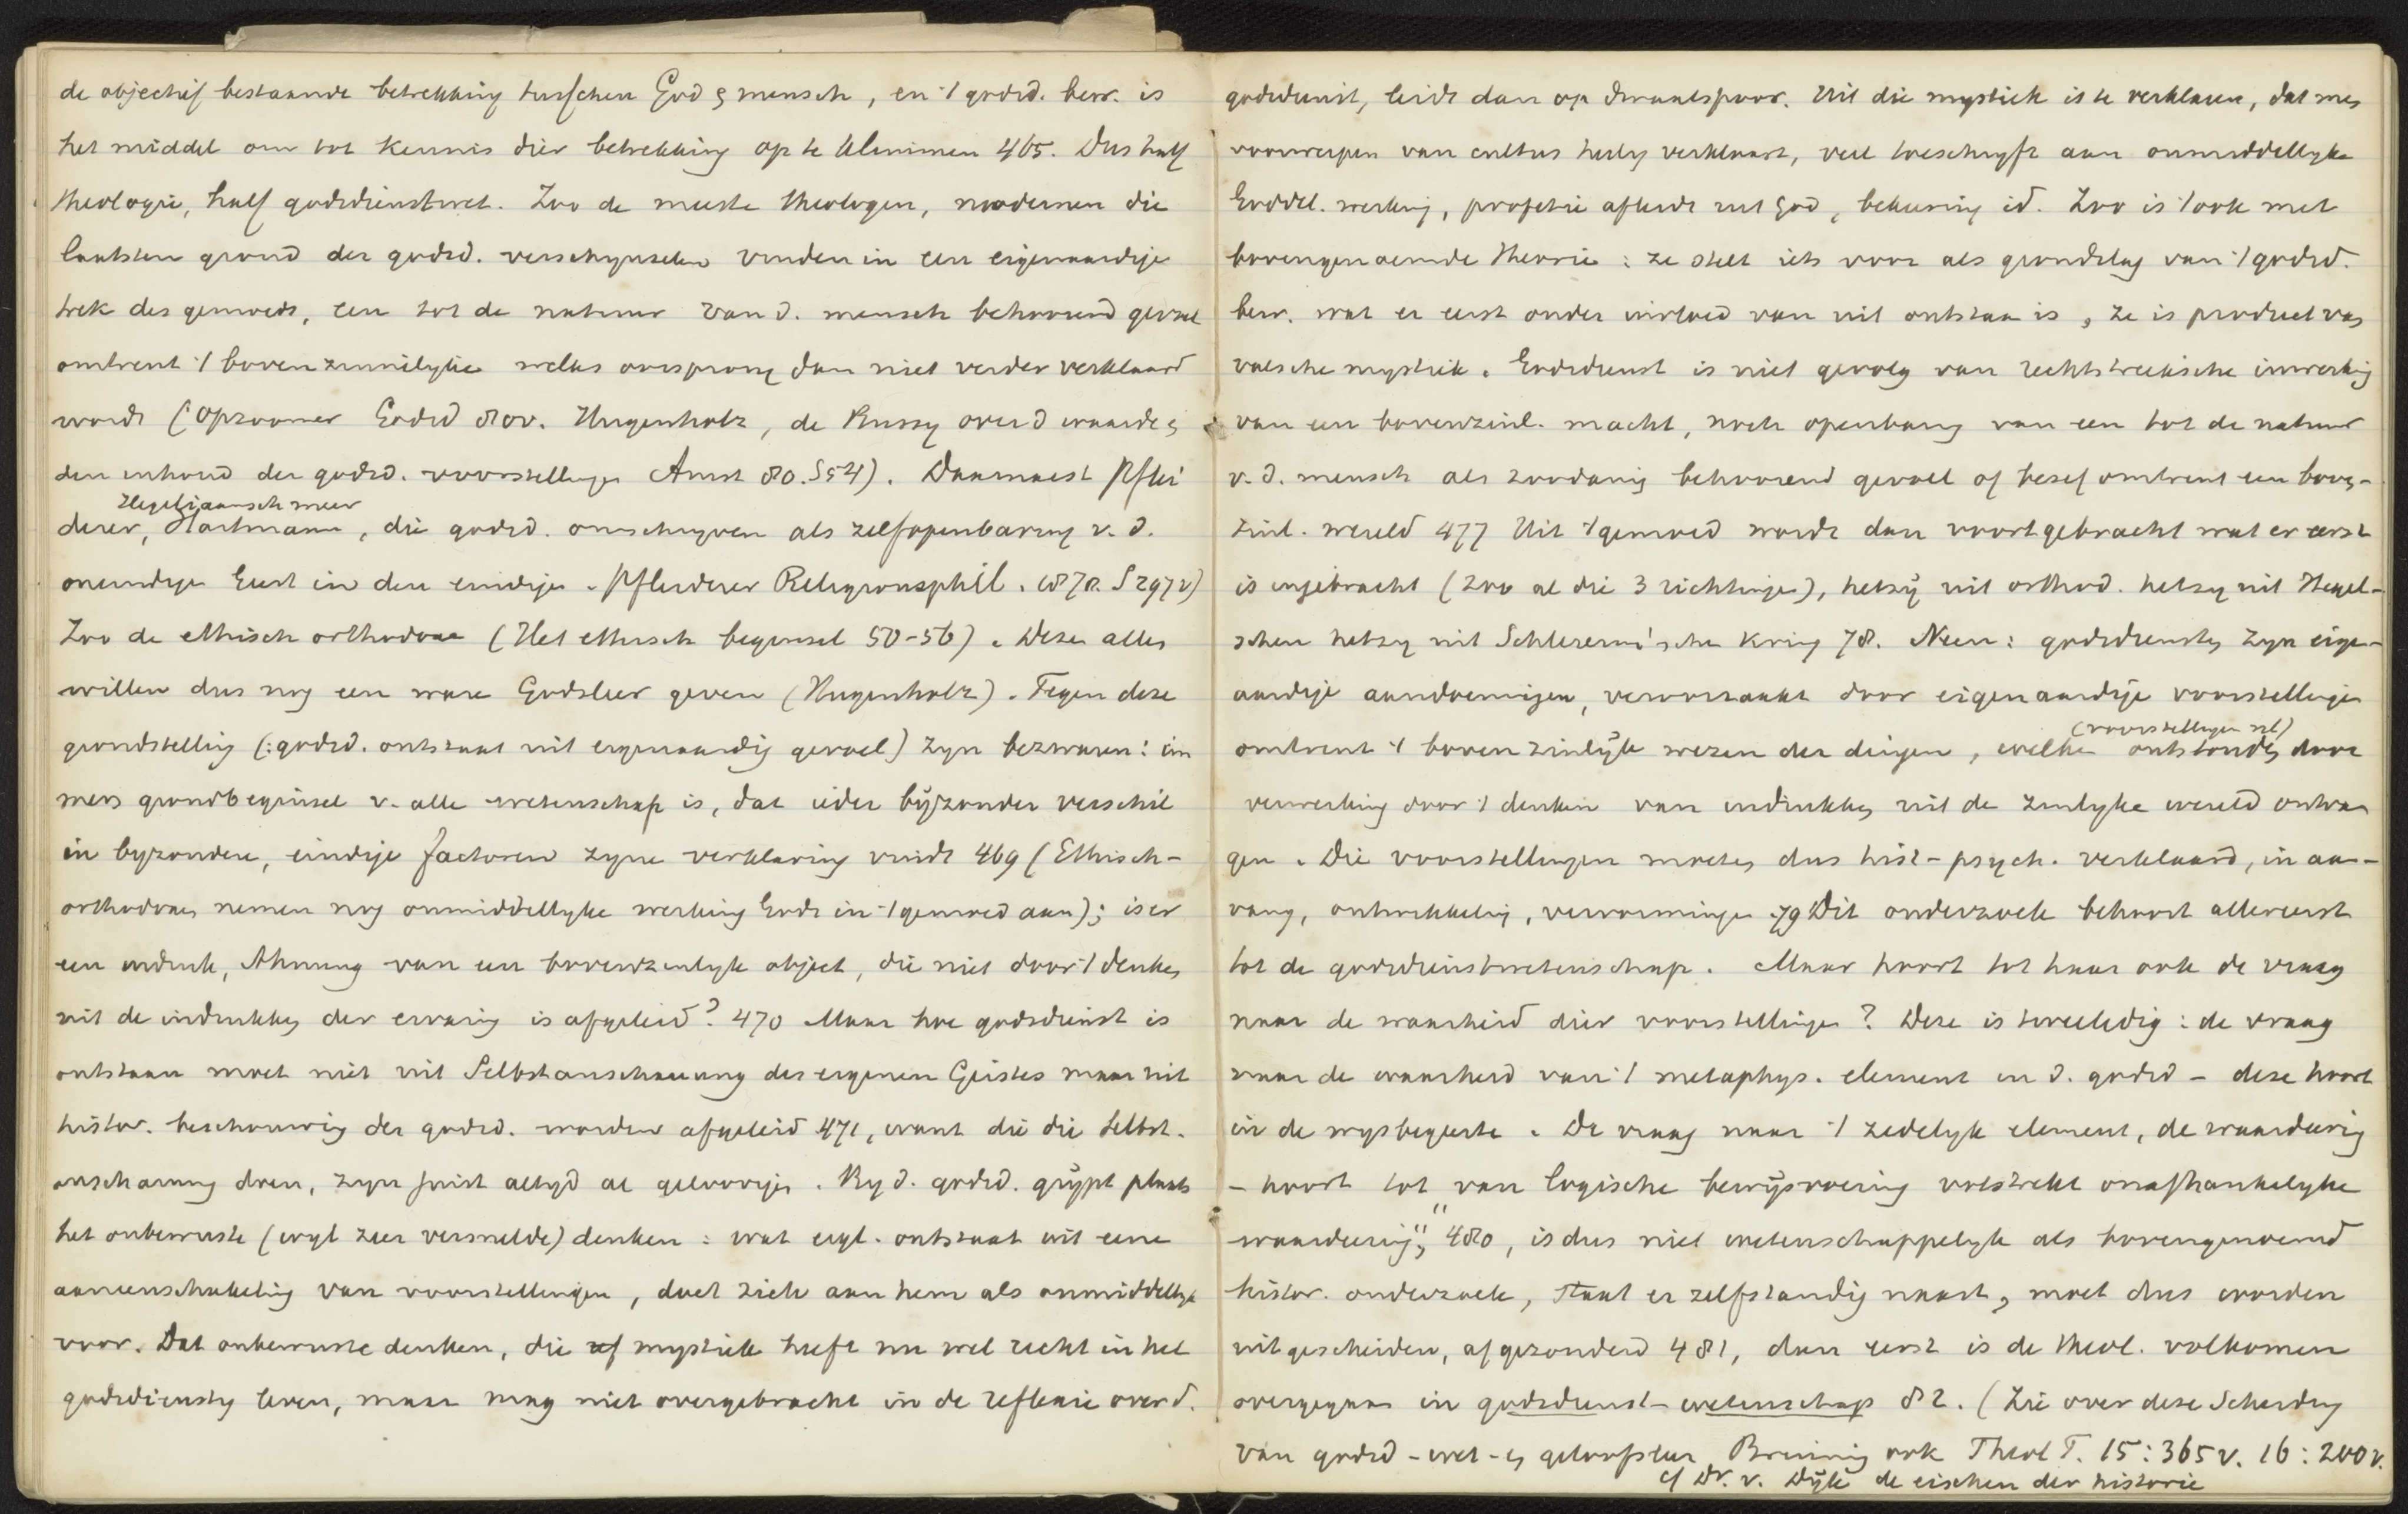 de objectief bestaande betrekking tusschen God & mensch, en 't godsd. bew. is
het middel om tot kennis dier betrekking op te klimmen 465. Dus half
theologie, half godsdienstwet. Zoo de meeste theologen, modernen die
laatsten grond der godsd. verschynselen vinden in een eigenaardige
trek des gemoeds, een tot de natuur van d. mensch behoorend gevoel
omtrent 't bovenzinnelyke welks oorsprong dan niet verder verklaard
wordt (Opzoomer Godsd 80v. Hugenholtz, de Bussy over d waarde &
den inhoud der godsd. voorstellingen Amst 80. S54). Daarnaast Pflei
Hegeliaansch meer
derer, Hartmann, die godsd. omschryven als zelfopenbaring v. d.
oneindige Geest in den eindige. Pfleiderer Religionsphil. 1878. S 297v)
Zoo de ethisch orthodoxe (Het ethisch beginsel 50-56). Deze alles
willen dus nog een ware Godsleer geven (Hugenholtz). Tegen deze
grondstelling (: godsd. ontstaat uit eigenaardig gevoel) zyn bezwaren: im
mers grondbeginsel v. alle wetenschap is, dat ieder byzonder verschil
in byzondere, eindige factoren zyne verklaring vindt 469 (Ethisch-
orthodoxen nemen nog onmiddellyke werking Gods in 't gemoed aan); is er
een indruk, Ahnung van een bovenzinlyk object, die niet door 't denken
uit de indrukken der ervaring is afgeleid? 470 Maar hoe godsdienst is
ontstaan moet niet uit Selbstanschauung des eigenen Geistes maar uit
histor. beschouwing der godsd. worden afgeleid 471, want die die Selbst-
anschauung doen, zyn juist altyd al geloovigen. By d. godsd. grypt plaats
het onbewuste (wyl zeer versnelde) denken: wat eigl. ontstaat uit eene
aaneenschakeling van voorstellingen, doet zich aan hem als onmiddellyk
voor. Dat onbewuste denken, die mystiek heeft nu wel recht in het
godsdienstig leven, maar mag niet overgebracht in de reflexie over d.
godsdienst, leidt dan op dwaalspoor. Uit die mystiek is te verklaren, dat men
voorwerpen van cultus heilig verklaart, veel toeschryft aan onmiddellyke
Goddel. werking, profetie afleidt uit God, bekeering id. Zoo is 't ook met
bovengenoemde theorie: ze stelt iets voor als grondslag van 't godsd.
bew. wat er eerst onder invloed van uit ontstaan is, ze is product van
valsche mystiek. Godsdienst is niet gevolg van rechtstreeksche inwerking
van een bovenzinl. macht, noch openbaring van een tot de natuur
v. d. mensch als zoodanig behoorend gevoel of besef omtrent een boven-
zinl. wereld 477 Uit 't gemoed wordt dan voortgebracht wat er eerst
is ingebracht (zoo al die 3 richtingen), hetzy uit orthod. hetzy uit Hegel-
schen hetzy uit Schleierm'schen kring 78. Neen: godsdiensten zyn eigen-
aardige aandoeningen, veroorzaakt door eigenaardige voorstellingen
(voorstellingen nl)
omtrent 't bovenzinlyk wezen der dingen, welke ontstonden door
verwerking door 't denken van indrukken uit de zinlyke wereld ontvan
gen. Die voorstellingen moeten dus hist-psych. verklaard, in aan-
vang, ontwikkeling, vervormingen 79 Dit onderzoek behoort allereerst
tot de godsdienstwetenschap. Maar hoort tot haar ook de vraag
naar de waarheid dier voorstellingen? Deze is tweeledig: de vraag
naar de waarheid van 't metaphys. element in d. godsd - deze hoort
in de wysbegeerte. De vraag naar 't zedelyk element, de waardeering
- hoort tot "van logische bewysvoering volstrekt onafhankelyke
waardeering", 480, is dus niet wetenschappelyk als bovengenoemd
histor. onderzoek, staat er zelfstandig naast, moet dus worden
uitgescheiden, afgezonderd 481, dan eerst is de theol. volkomen
overgegaan in godsdienst-wetenschap 82. (Zie over deze scheiding
van godsd-wet- & geloofsleer Bruining ook Theol T. 15: 365v. 16: 200v.
cf Dr. v. Dyk de eischen der historie